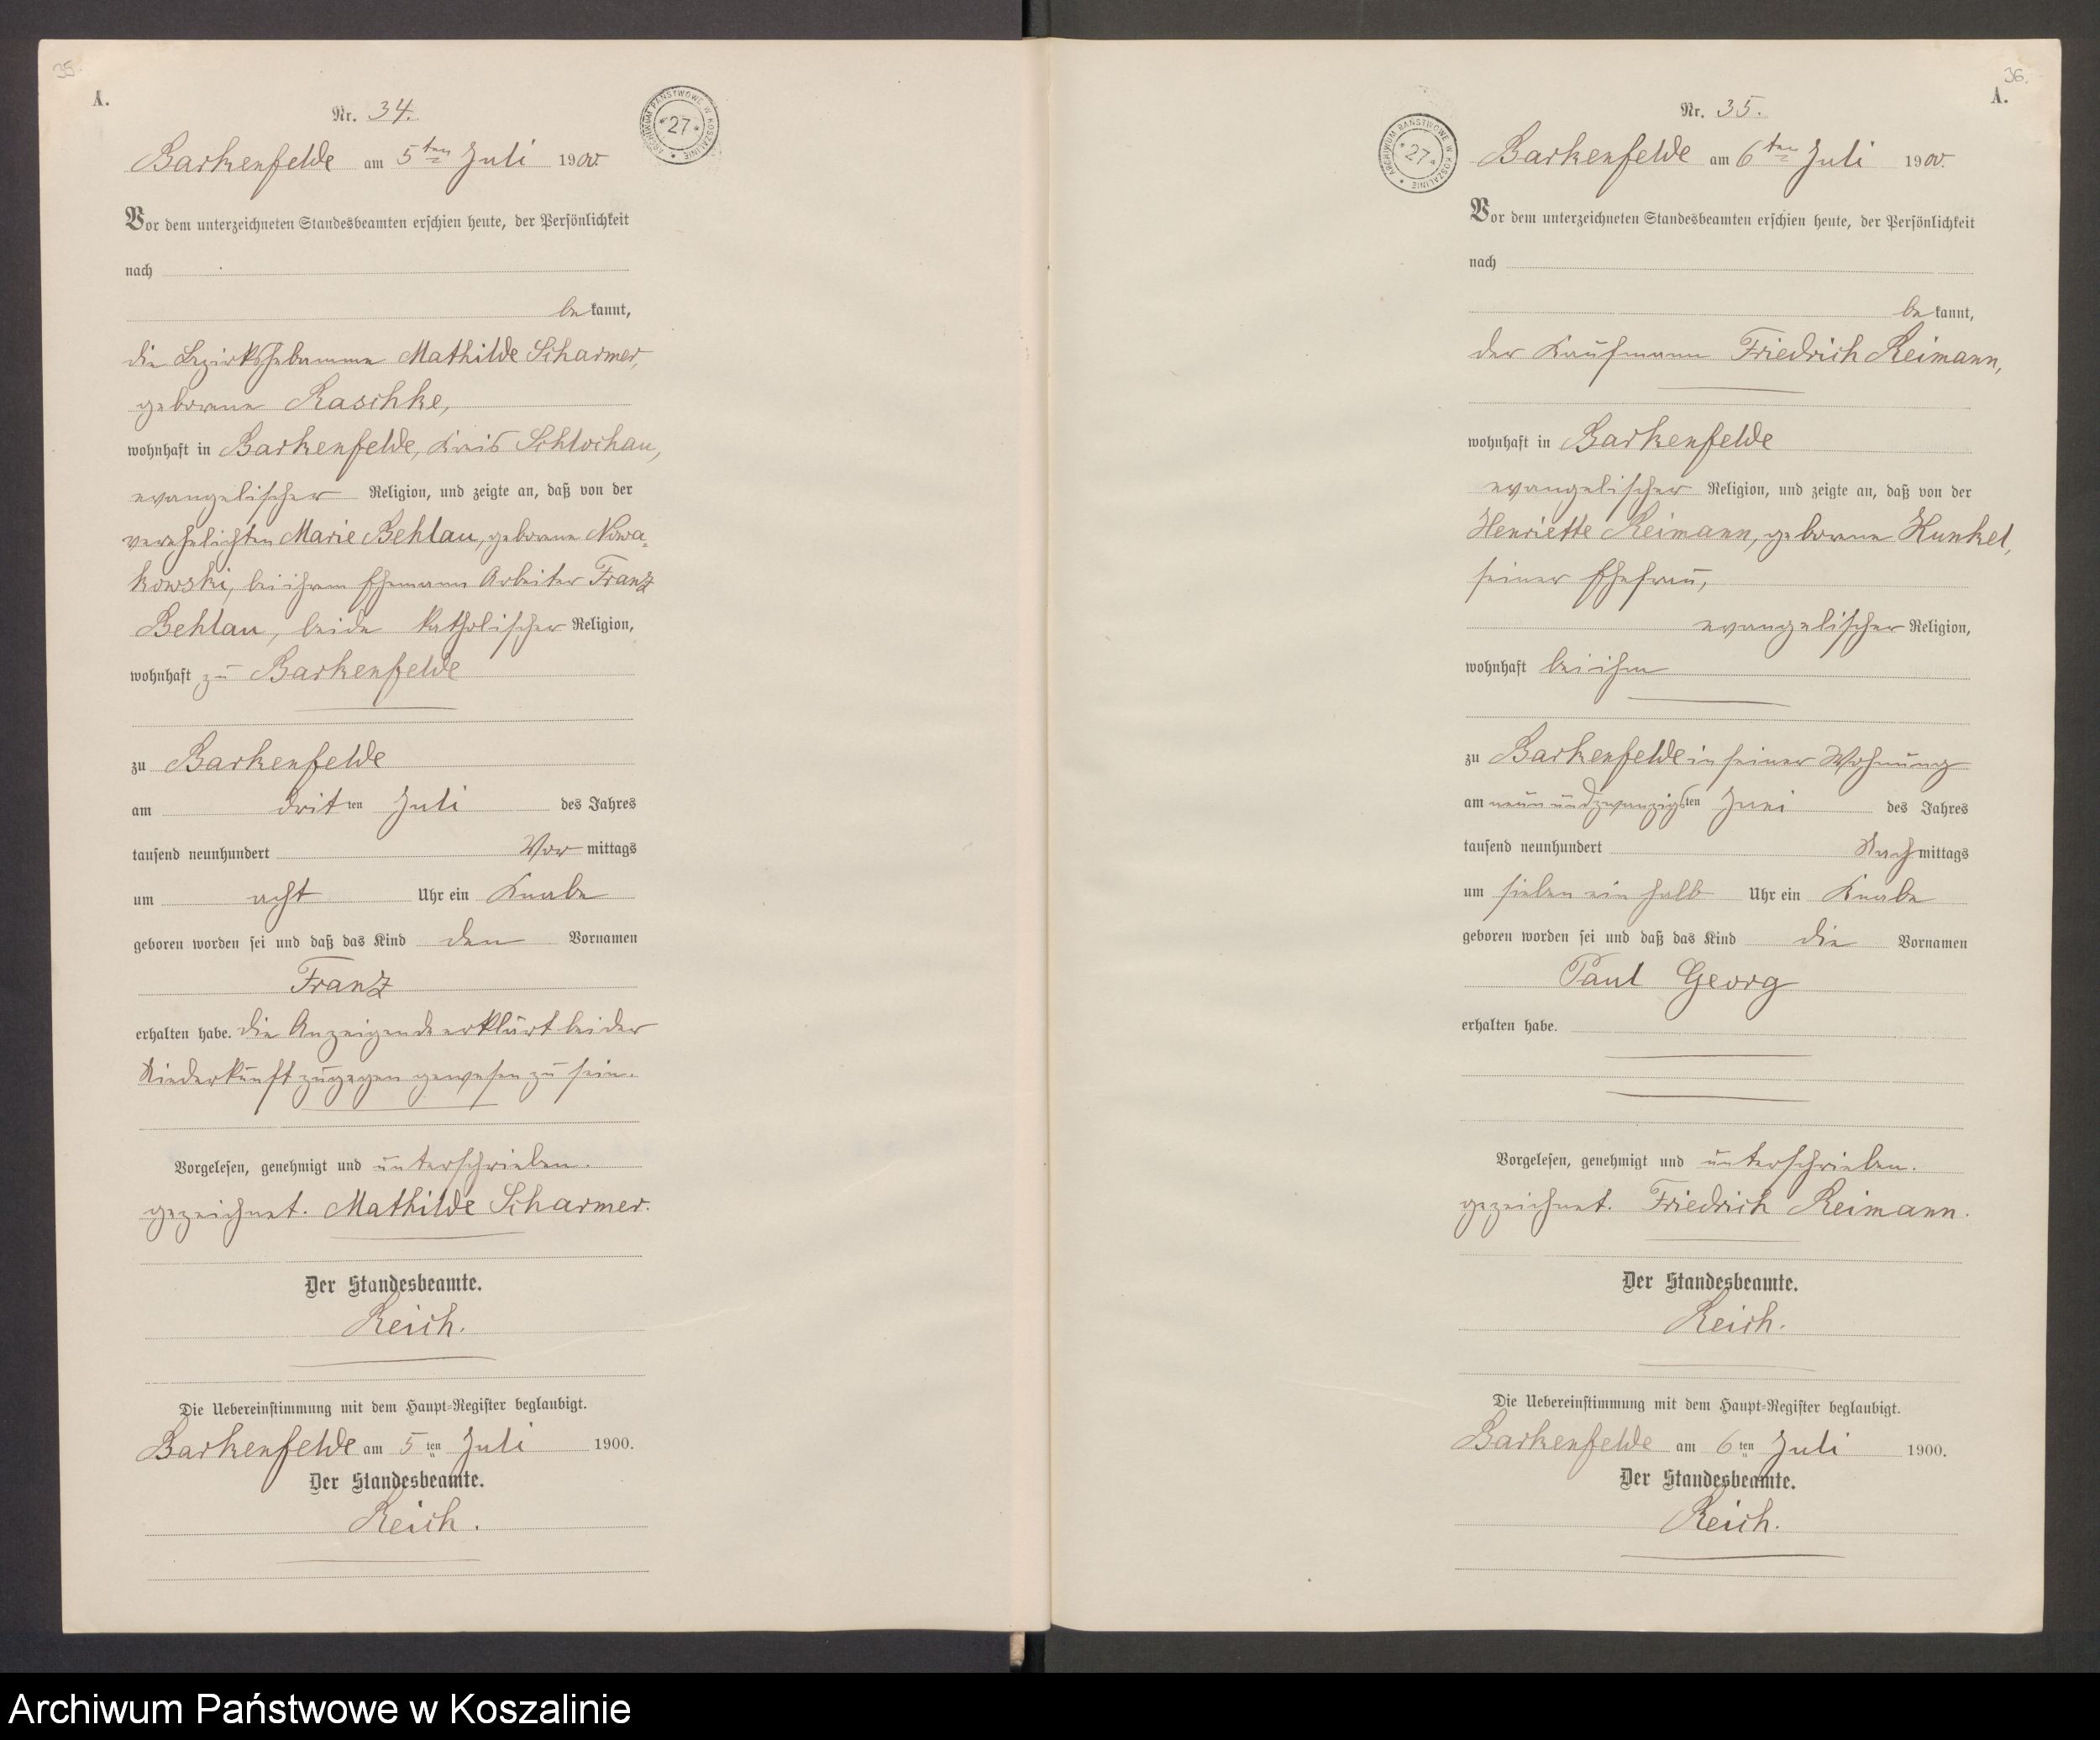 35.
A.
Nr. 34.
ARCHIWUM PAŃSTWOWE W KOSZALINIE
* 27 *
Barkenfelde am 5ten Juli 1900.
Vor dem unterzeichneten Standesbeamten erschien heute, der Persönlichkeit
nach
bekannt,
die Bezirkshebamme Mathilde Scharmer,
geborene Raschke,
wohnhaft in Barkenfelde, Kreis Schlochau,
evangelischer Religion, und zeigte an, daß von der
verehelichten Marie Behlau, geborene Nowa-
kowski, bei ihrem Ehemann Arbeiter Franz
Behlau, beide katholischer Religion,
wohnhaft zu Barkenfelde
zu Barkenfelde
am dritten Juli des Jahres
tausend neunhundert Vormittags
um acht Uhr ein Knabe
geboren worden sei und daß das Kind den Vornamen
Franz
erhalten habe. Die Anzeigende erklärt bei der
Niederkunft zugegen gewesen zu sein.
Vorgelesen, genehmigt und unterschrieben.
gezeichnet. Mathilde Scharmer.
Der Standesbeamte.
Reich.
Die Uebereinstimmung mit dem Haupt-Register beglaubigt.
Barkenfelde am 5ten Juli 1900.
Der Standesbeamte.
Reich.
36.
A.
Nr. 35.
ARCHIWUM PAŃSTWOWE W KOSZALINIE
* 27 *
Barkenfelde am 6ten Juli 1900.
Vor dem unterzeichneten Standesbeamten erschien heute, der Persönlichkeit
nach
bekannt,
der Kaufmann Friedrich Reimann,
wohnhaft in Barkenfelde
evangelischer Religion, und zeigte an, daß von der
Henriette Reimann, geborene Kunkel,
seiner Ehefrau,
evangelischer Religion,
wohnhaft bei ihm
zu Barkenfelde in seiner Wohnung
am neunundzwanzigsten Juni des Jahres
tausend neunhundert Nachmittags
um sieben ein halb Uhr ein Knabe
geboren worden sei und daß das Kind die Vornamen
Paul Georg
erhalten habe.
Vorgelesen, genehmigt und unterschrieben.
gezeichnet. Friedrich Reimann.
Der Standesbeamte.
Reich.
Die Uebereinstimmung mit dem Haupt-Register beglaubigt.
Barkenfelde am 6ten Juli 1900.
Der Standesbeamte.
Reich.
Archiwum Państwowe w Koszalinie